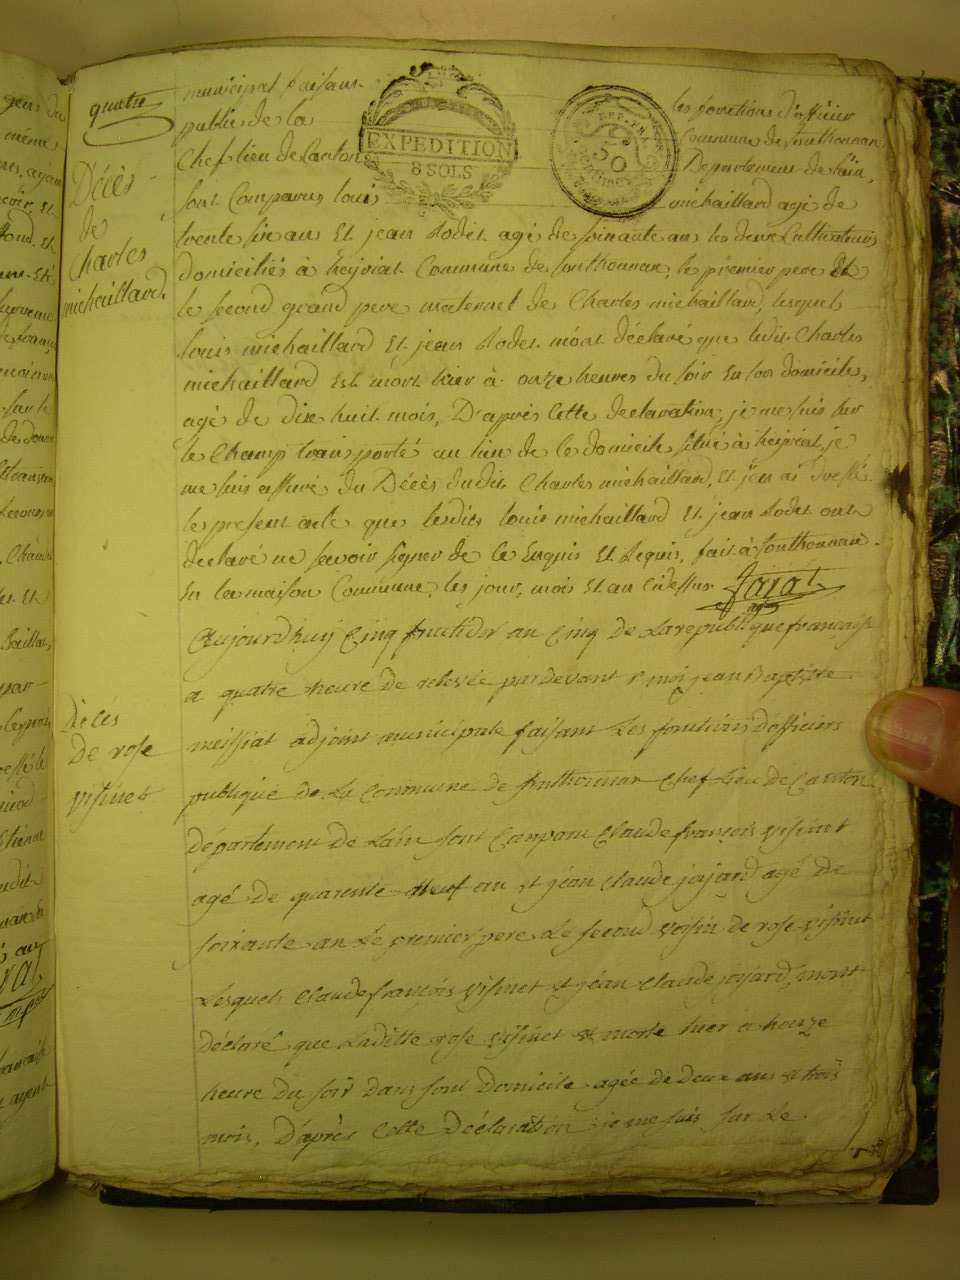 quatre
Décès
de
Charles
michaillard.
municipal faisant
les fonctions d'officier
publi de la
Commune de Sonthonnax
Chef lieu de Canton
Département de l'ain,
sont Comparus louis
michaillard agé de
EXPEDITION
8 SOLS
50
trente six ans Et jean Rodet agé de soixante ans les deux Cultivateurs
domiciliés à heyriat Commune de Sonthonnax, le premier pere Et
le second grand pere maternel de Charles michaillard, lesquels
louis michaillard Et jean Rodet m'ont déclaré que ledit Charles
michaillard Est mort hier à onze heures du soir En son domicile,
agé de dix huit mois, D'après Cette déclaration, je me suis sur
le Champ transporté au lieu de Ce domicile situé à heyriat, je
me suis assuré du Décès dudit Charles michaillard, Et j'en ai dressé
le present acte que lesdits louis michaillard Et jean Rodet ont
déclaré ne savoir signer de Ce Enquis Et Requis, fait à Sonthonnax
En la maison Commune, les jour, mois Et an Cidessus
Décès
De rose
visinet
Aujourdhuy Cinq fructidor an Cinq de La republique français
a quatre heure de relevée par devant moi jean Baptiste
meissiat adjoint municipale faisant Les fontions dofficiers
publique de La Commune de sonthonnax Chef Lieu de Canton
département de Lain sont Comparu Claude françois visinet
agé de quarente neuf an et jean Claude jajard agé de
soixante an Le premier pere Le second voisin de rose visinet
Lesquels Claude françois visinet et jean Claude jajard, mont
déclaré que Laditte rose visinet et morte hier a honze
heure du soir dans sont Domicile agée de deux ans et trois
mois, D'après Cette déclaration je me suis sur Le